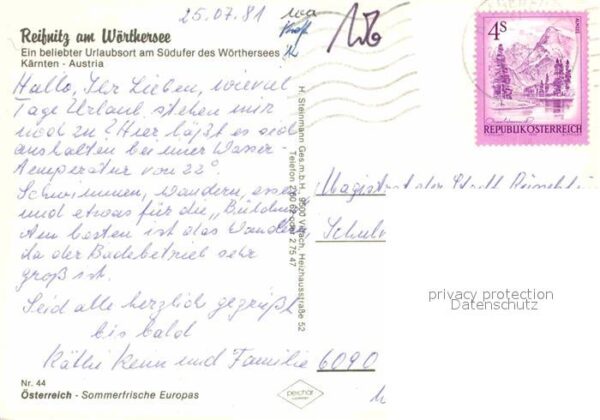 25.07.81
Reifnitz am Wörthersee
Ein beliebter Urlaubsort am Südufer des Wörthersees
Kärnten - Austria
Hallo, Ihr Lieben, wieviel
Tage Urlaub stehen mir
noch zu? Hier läßt es sich
aushalten bei einer Wasser-
temperatur von 22°.
Schwimmen, wandern, essen
und etwas für die „Bildung"
Am besten ist das Wandern,
da der Badebetrieb sehr
groß ist.
Seid alle herzlich gegrüßt
bis bald
Käthi Kenn und Familie
Nr. 44
Österreich - Sommerfrische Europas
H. Steinmann Ges.m.b.H. 9500 Villach, Heizhausstraße 52
Telefon 2 00 62 oder 2 75 47
4S
ALMSEE
REPUBLIK ÖSTERREICH
Magistrat der Stadt
Schul
6090
privacy protection
Datenschutz